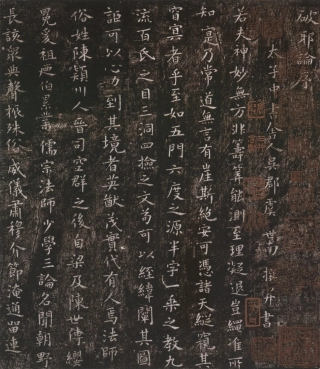 破邪論序
太子中書舍人吳郡虞世南撰并書
若夫神妙無方非籌筭能測至理凝邈豈繩准所
知實乃常道無言有崖斯絕安可憑諸天縱窺其
窅冥者乎至如五門六度之源半字一乘之教九
流百氏之目三洞四撿之文苟可以經緯闡其圖
詎可以心力到其境者英猷茂實代有人焉法師
俗姓陳潁川人晉司空群之後自梁及陳世傳纓
冕爰祖及伯累業儒宗法師少學三論名聞朝野
長該眾典聲振殊俗威儀肅穆介節淹通留連